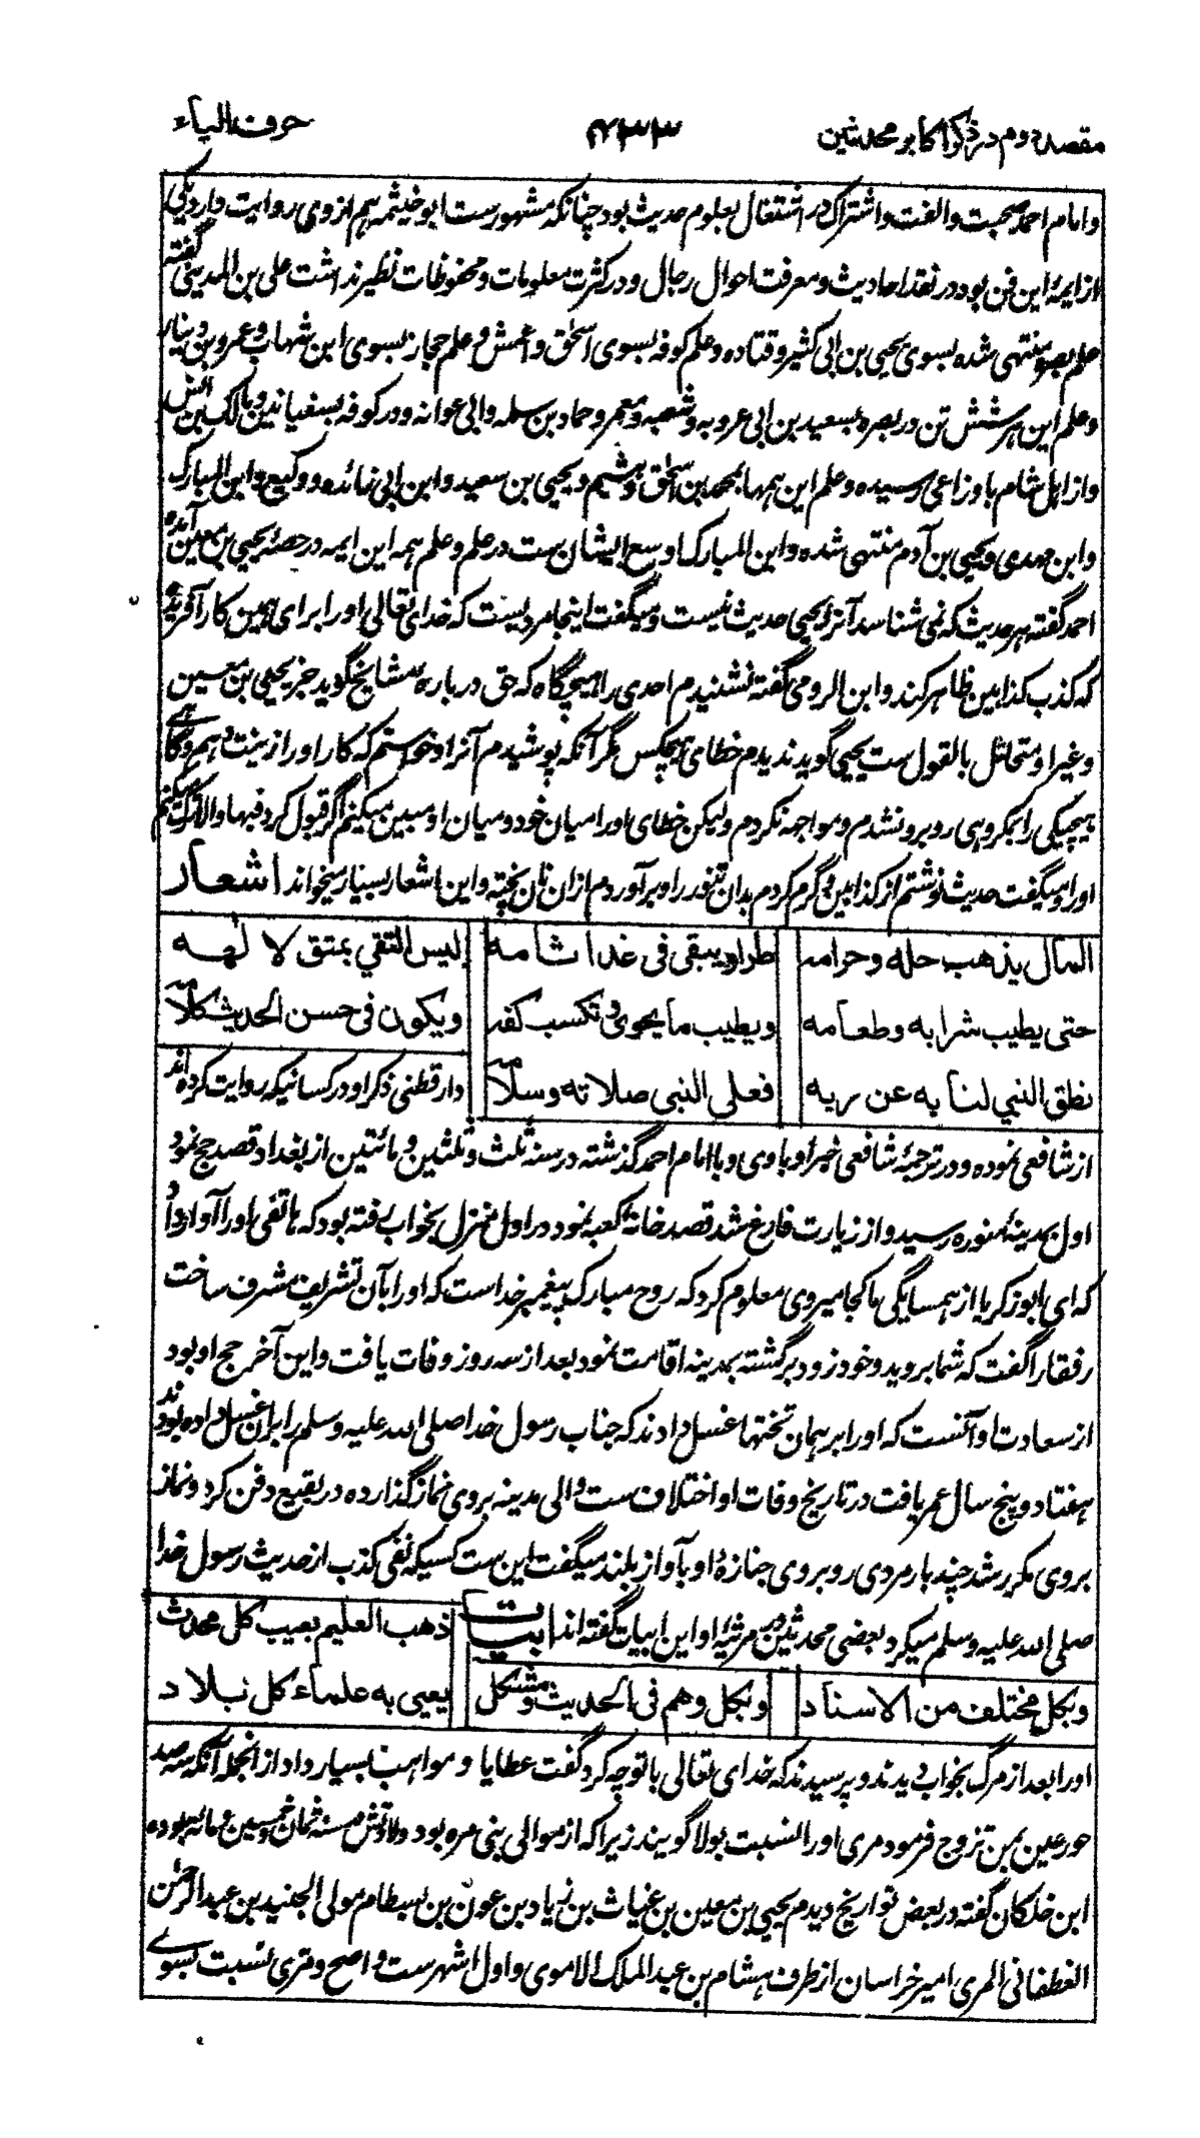 مقصد دوم در ذکر اکابر محدثین ۴۳۳ حرف الیاء
وامام احمد صحبت والفت واشتراک در اشتغال بعلوم حدیث بود چنانکه مشهورست ابو خیثمه هم از وی روایت دارد یکی
از ایمۀ این فن بود در نقد احادیث ومعرفت احوال رجال ودر کثرت معلومات ومحفوظات نظیر نداشت علی بن المدینی گفته
علم بصره منتهی شده بسوی یحیی بن ابی کثیر وقتاده وعلم کوفه بسوی اسحق واعمش وعلم حجاز بسوی ابن شهاب وعمرو بن دینار
وعلم این هر شش تن در بصره بسعید بن ابی عروبه وشعبه ومعمر وحماد بن سلمه وابی عوانه ودر کوفه بسفیانین وبمالک بن انس
واز اهل شام باوزاعی رسیده وعلم این همها بمحمد بن اسحق وهشیم ویحیی بن سعید وابن ابی زائده ووکیع وابن المبارک
وابن مهدی ویحیی بن آدم منتهی شده وابن المبارک اوسع ایشان ست در علم وعلم همه این ایمه در حصۀ یحیی بن معین آمده
احمد گفته هر حدیث که نمی شناسد آنرا یحیی حدیث نیست ومیگفت اینجا مردیست که خدای تعالی او را برای همین کار آفریده
که کذب کذابین ظاهر کند وابن الرومی گفته نشنیدم احدی را هیچگاه که حق درباره مشایخ گوید جز یحیی بن معین
وغیر او متحائل بالقول ست یحیی گوید ندیدم خطای هیچکس مگر آنکه پوشیدم آنرا وخواستم که کار او را زینت دهم وگاهے
بهیچیکی را بمکروهی روبرو نشدم ومواجهه نکردم ولیکن خطای او را میان خود ومیان او مبین میکنم اگر قبول کرد فبها والا ترک میکنم
او را ومیگفت حدیث نوشتم از کذابین وگرم کردم بدان تنور را وبرآوردم ازان نان پخته واین اشعار بسیار میخواند اشعار
المال یذهب حله وحرامه طرا ویبقی فی غد اثامه لیس التقی بمتق لالهه
حتی یطیب شرابه وطعامه ویطیب ما یحوی وتکسب کفه ویکون فی حسن الحدیث کلامه
نطق النبی لنا به عن ربه فعلی النبی صلاته وسلامه دارقطنی ذکر او در کسانیکه روایت کرده اند
از شافعی نموده ودر ترجمۀ شافعی خبر او با وی وبا امام احمد گذشته در سنۀ ثلث وثلثین ومائتین از بغداد قصد حج نمود
اول بمدینۀ منوره رسید واز زیارت فارغ شد قصد خانۀ کعبه نمود در اول منزل بخواب رفته بود که هاتفی او را آواز داد
که ای ابو زکریا از همسایگی ما کجا میروی معلوم کرد که روح مبارک پیغمبر خداست که او را بآن تشریف مشرف ساخت
رفقا را گفت که شما بروید وخود زود برگشته بمدینه اقامت نمود بعد از سه روز وفات یافت واین آخر حج او بود
از سعادت او آنست که او را بر همان تختها غسل دادند که جناب رسول خدا صلی الله علیه وسلم را بران غسل داده بودند
هفتاد وپنج سال عمر یافت در تاریخ وفات او اختلاف ست والی مدینه بر وی نماز گذارده در بقیع دفن کرد ونماز
بر وی مکرر شد چند بار مردی روبروی جنازۀ او بآواز بلند میگفت این ست کسیکه نفی کذب از حدیث رسول خدا
صلی الله علیه وسلم میکرد بعضی محدثین در مرثیۀ او این ابیات گفته اند ابیات ذهب العلیم بعیب کل محدث
وبکل مختلف من الاسناد وبکل وهم فی الحدیث ومشکل یعیی به علماء کل بلاد
او را بعد از مرگ بخواب دیدند وپرسیدند که خدای تعالی با تو چه کرد گفت عطایا ومواهب بسیار داد از انجمله آنکه سه صد
حور عین بمن تزوج فرمود مری او را بنسبت بولا گویند زیرا که از موالی بنی مره بود ولادتش سنه ثمان وخمسین ومائه بوده
ابن خلکان گفته در بعض تواریخ دیدم یحیی بن معین بن غیاث بن زیاد بن عون بن بسطام مولی الجنید بن عبد الرحمن
الغطفانی المری امیر خراسان از طرف هشام بن عبد الملک الاموی واول اشهرست واصح ومری نسبت بسوے